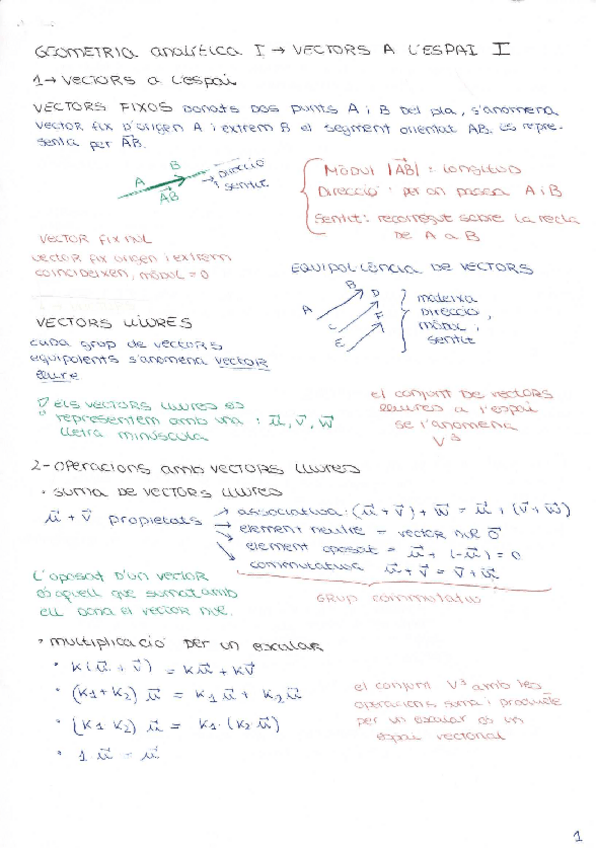 GEOMETRIA analítica I → VECTORS A L'ESPAI I
1→ VECTORS a l'espai
VECTORS FIXOS Donats dos punts A i B del pla, s'anomena
vector fix d'origen A i extrem B el segment orientat AB. Es repre-
senta per A⃗B.
A
B
A⃗B
→ Direcció
sentit
MÒDUL |A⃗B| : longitud
Direcció : per on passa A i B
Sentit: recorregut sobre la recta
de A a B
VECTOR FIX NUL
vector fix origen i extrem
coincideixen, mòdul = 0
EQUIPOL·LÈNCIA DE VECTORS
A
B
C
D
E
F
mateixa
direcció,
mòdul i
sentit
VECTORS LLIURES
cada grup de vectors
equipolents s'anomena vector
lliure
els VECTORS lliures es
representem amb una : u⃗, v⃗, w⃗
lletra minúscula
el conjunt de vectors
lliures a l'espai
se l'anomena
V³
2- OPERACIONS amb VECTORS lliures
· suma de vectors lliures
u⃗ + v⃗ propietats
→ associativa: (u⃗ + v⃗) + w⃗ = u⃗ + (v⃗ + w⃗)
→ element neutre = vector nul o⃗
element oposat = u⃗ + (-u⃗) = 0
commutativa u⃗ + v⃗ = v⃗ + u⃗
GRUP commutatiu
L'oposat d'un vector
és aquell que sumat amb
ell dona el vector nul.
· multiplicació per un escalar
· K(u⃗ + v⃗) = Ku⃗ + Kv⃗
· (K1+K2) u⃗ = K1u⃗ + K2u⃗
· (K1 K2) u⃗ = K1·(K2 u⃗)
· 1·u⃗ = u⃗
el conjunt V³ amb les
operacions suma i producte
per un escalar és un
espai vectorial
1